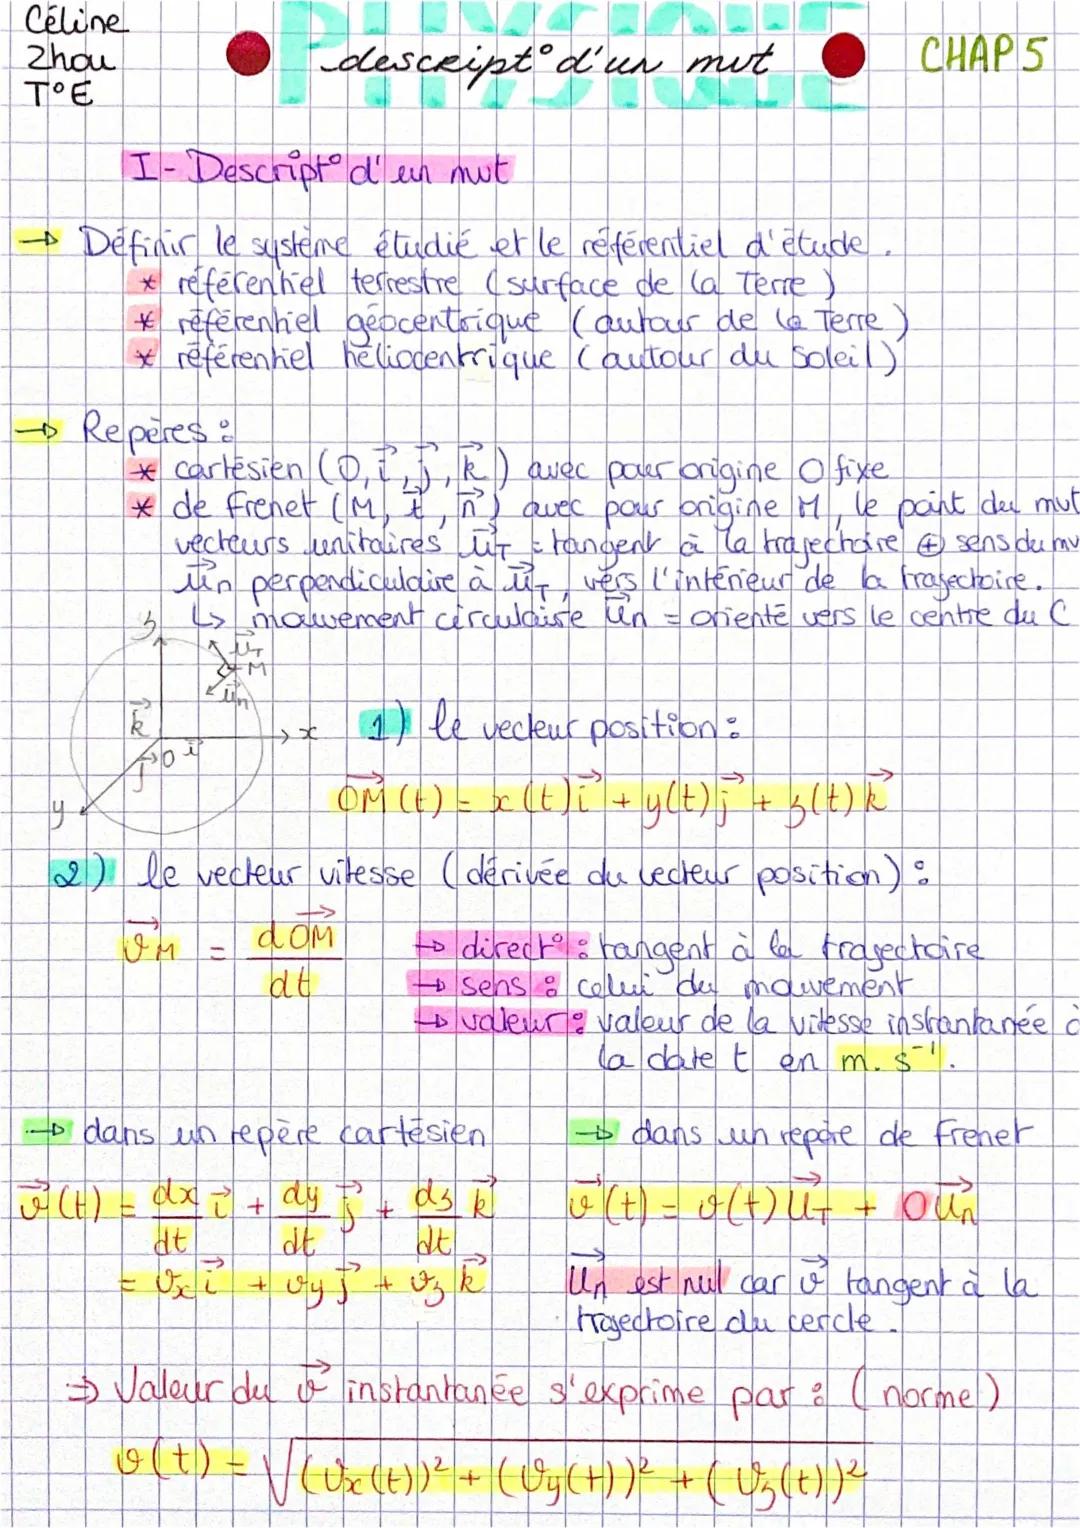 Céline
Zhou
T°E
PHYSIQUE
descript° d'un mvt
CHAP 5
I - Descript° d'un mvt
→ Définir le système étudié et le référentiel d'étude.
* référentiel terrestre (surface de la Terre)
* référentiel géocentrique (autour de la Terre)
* référentiel héliocentrique (autour du Soleil)
→ Repères :
* cartésien (O, i⃗, j⃗, k⃗) avec pour origine O fixe
* de Frenet (M, t⃗, n⃗) avec pour origine M, le point du mvt
vecteurs unitaires u⃗T = tangent à la trajectoire ⊕ sens du mv
u⃗n perpendiculaire à u⃗T, vers l'intérieur de la trajectoire.
↳ mouvement circulaire u⃗n = orienté vers le centre du C
z
u⃗T
M
u⃗n
k⃗
x
O i⃗
j⃗
y
1) le vecteur position :
OM⃗(t) = x(t)i⃗ + y(t)j⃗ + z(t)k⃗
2) le vecteur vitesse (dérivée du vecteur position) :
v⃗M = dOM⃗/dt
→ direct° : tangent à la trajectoire
→ sens : celui du mouvement
→ valeur : valeur de la vitesse instantanée à
la date t en m.s⁻¹.
→ dans un repère cartésien
v⃗(t) = dx/dt i⃗ + dy/dt j⃗ + dz/dt k⃗
= vx i⃗ + vy j⃗ + vz k⃗
→ dans un repère de Frenet
v⃗(t) = v(t)u⃗T + 0u⃗n
u⃗n est nul car v⃗ tangent à la
trajectoire du cercle.
⇒ Valeur du v⃗ instantanée s'exprime par : (norme)
v(t) = √((vx(t))² + (vy(t))² + (vz(t))²